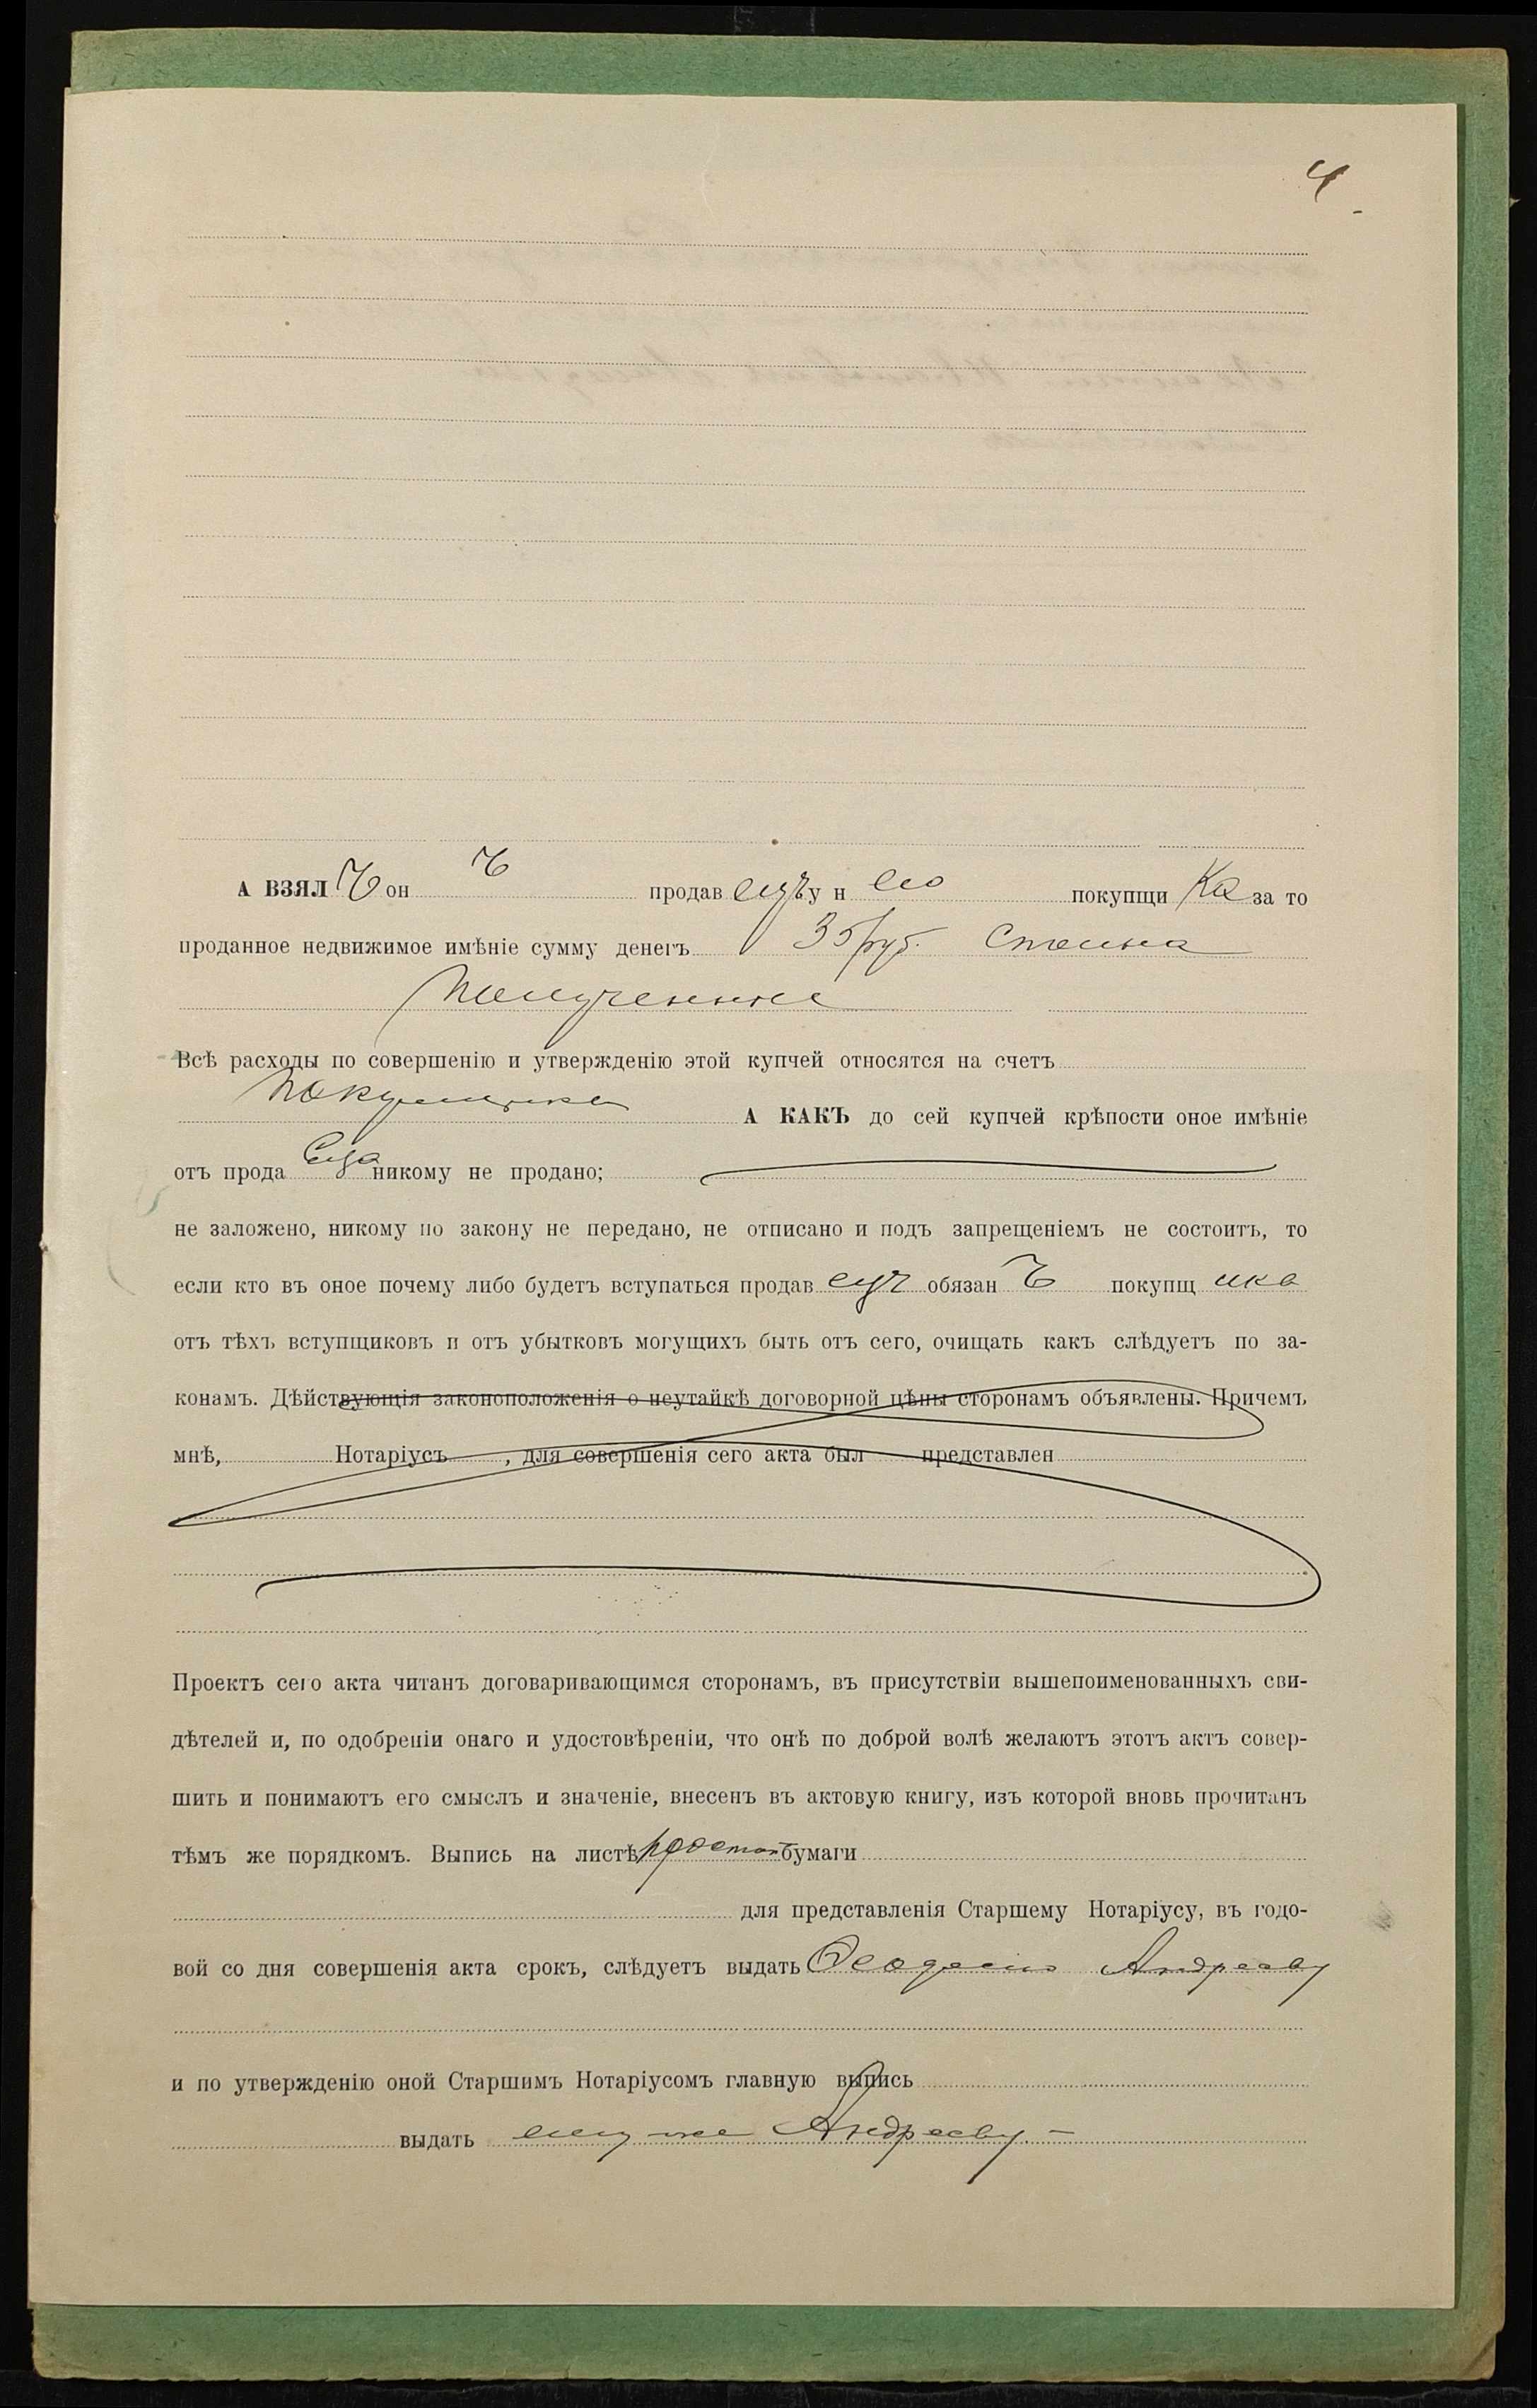 4
А ВЗЯЛЪ онъ продавецъ у него покупщика за то
проданное недвижимое имѣніе сумму денегъ 35 руб. сполна
полученные
Всѣ расходы по совершенію и утвержденію этой купчей относятся на счетъ
покупщика А КАКЪ до сей купчей крѣпости оное имѣніе
отъ продавца никому не продано;
не заложено, никому по закону не передано, не отписано и подъ запрещеніемъ не состоитъ, то
если кто въ оное почему либо будетъ вступаться продавецъ обязанъ покупщика
отъ тѣхъ вступщиковъ и отъ убытковъ могущихъ быть отъ сего, очищать какъ слѣдуетъ по за-
конамъ. Дѣйствующія законоположенія о неутайкѣ договорной цѣны сторонамъ объявлены. Причемъ
мнѣ, Нотаріусъ , для совершенія сего акта был представлен
Проектъ сего акта читанъ договаривающимся сторонамъ, въ присутствіи вышепоименованныхъ сви-
дѣтелей и, по одобреніи онаго и удостовѣреніи, что онѣ по доброй волѣ желаютъ этотъ актъ совер-
шить и понимаютъ его смыслъ и значеніе, внесенъ въ актовую книгу, изъ которой вновь прочитанъ
тѣмъ же порядкомъ. Выпись на листѣ простой бумаги
для представленія Старшему Нотаріусу, въ годо-
вой со дня совершенія акта срокъ, слѣдуетъ выдать Ѳеодосію Андрееву
и по утвержденію оной Старшимъ Нотаріусомъ главную выпись
выдать ему же Андрееву